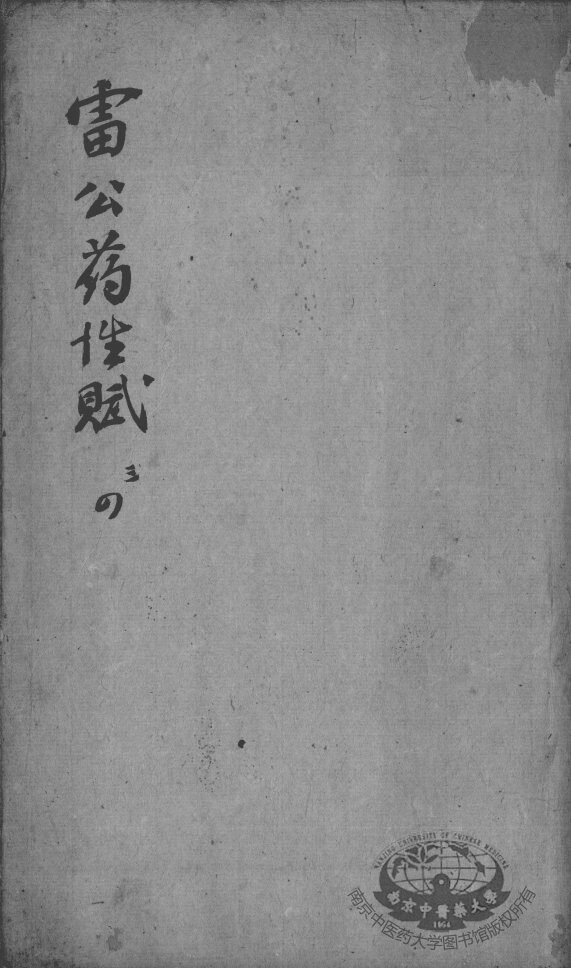 雷公药性赋
三
四
NANJING UNIVERSITY OF CHINESE MEDICINE
南京中醫藥大學
1954
南京中医药大学图书馆版权所有